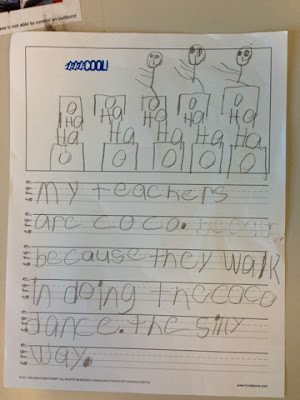 ane is not able to control an outburst
COOL!
O O O O O
Ha Ha Ha Ha Ha
Ha Ha Ha Ha Ha
O O O O O
My teachers
are coco. because
because they walk
in doing the coco
dance. the silly
way.
www.fundations.com